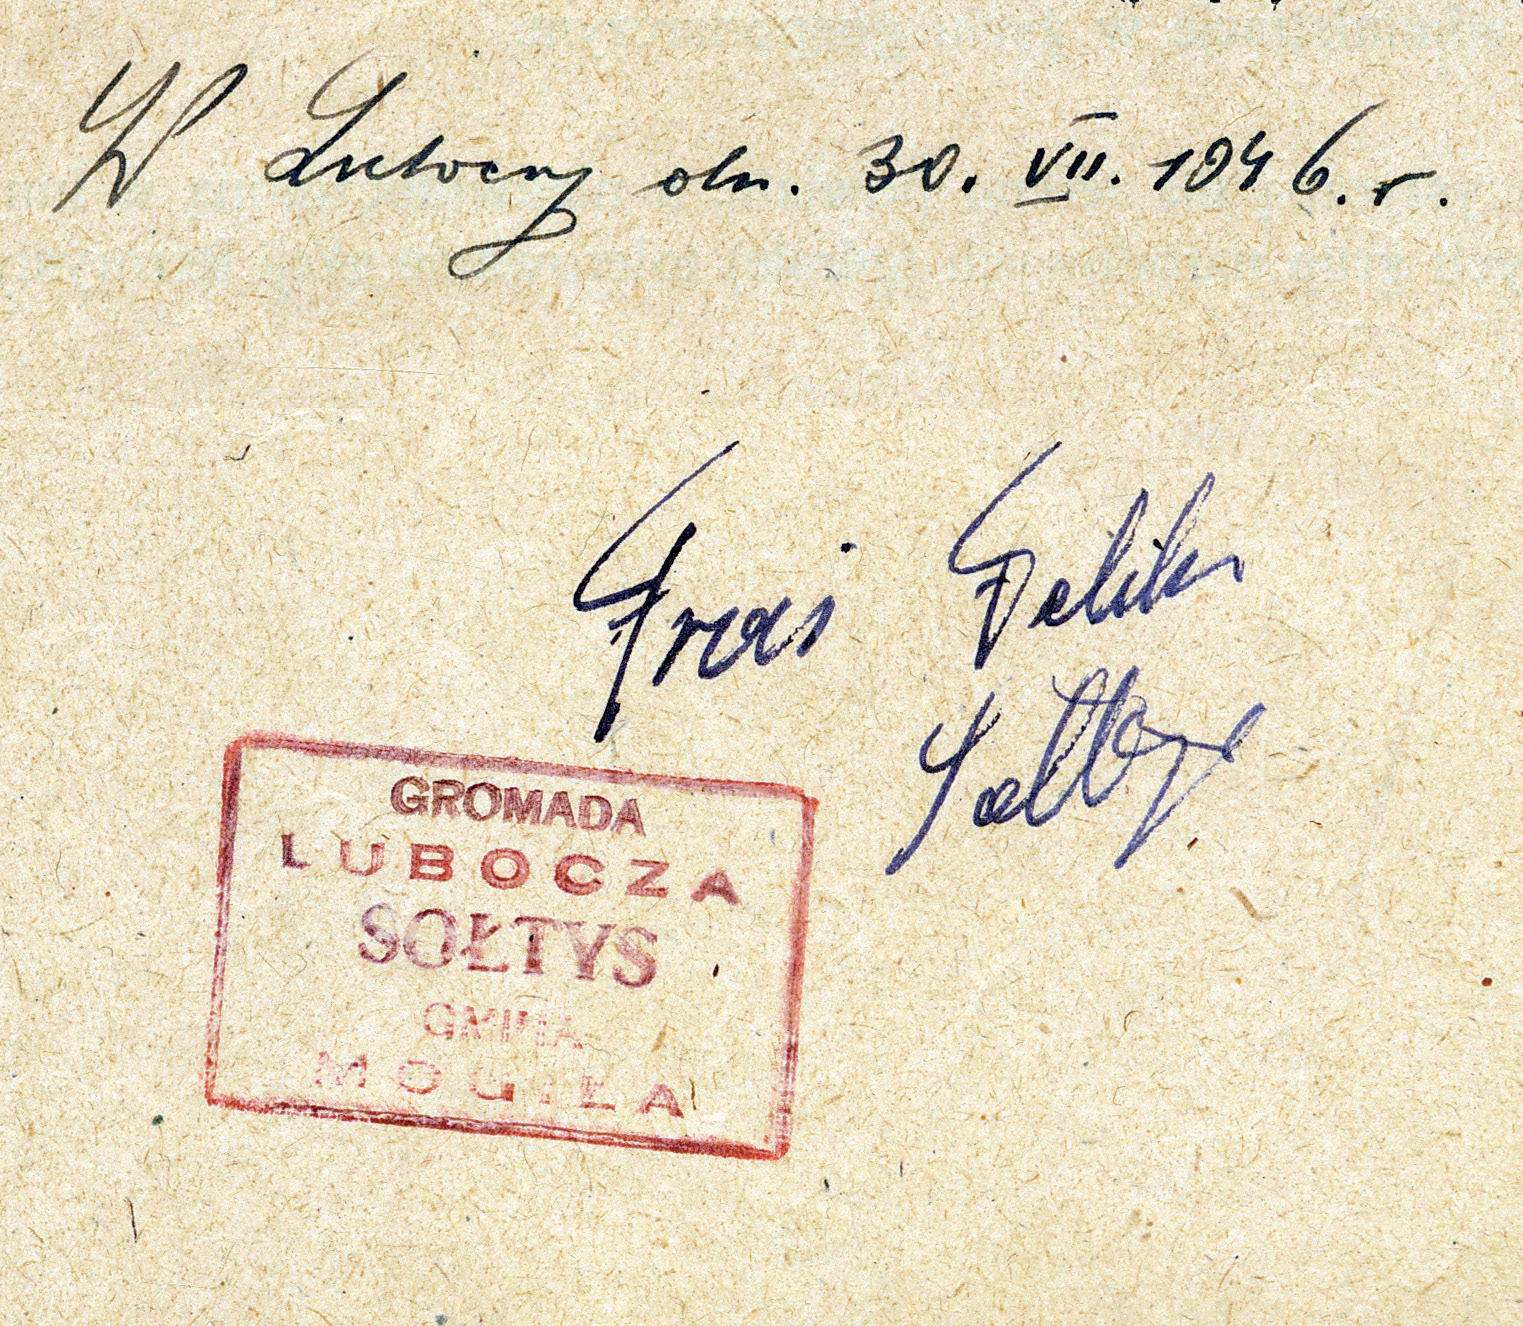 W Luboczy dn. 30. VII. 1946. r.
Feliks
Sołtys
GROMADA
LUBOCZA
SOŁTYS
GMINA
MOGIŁA